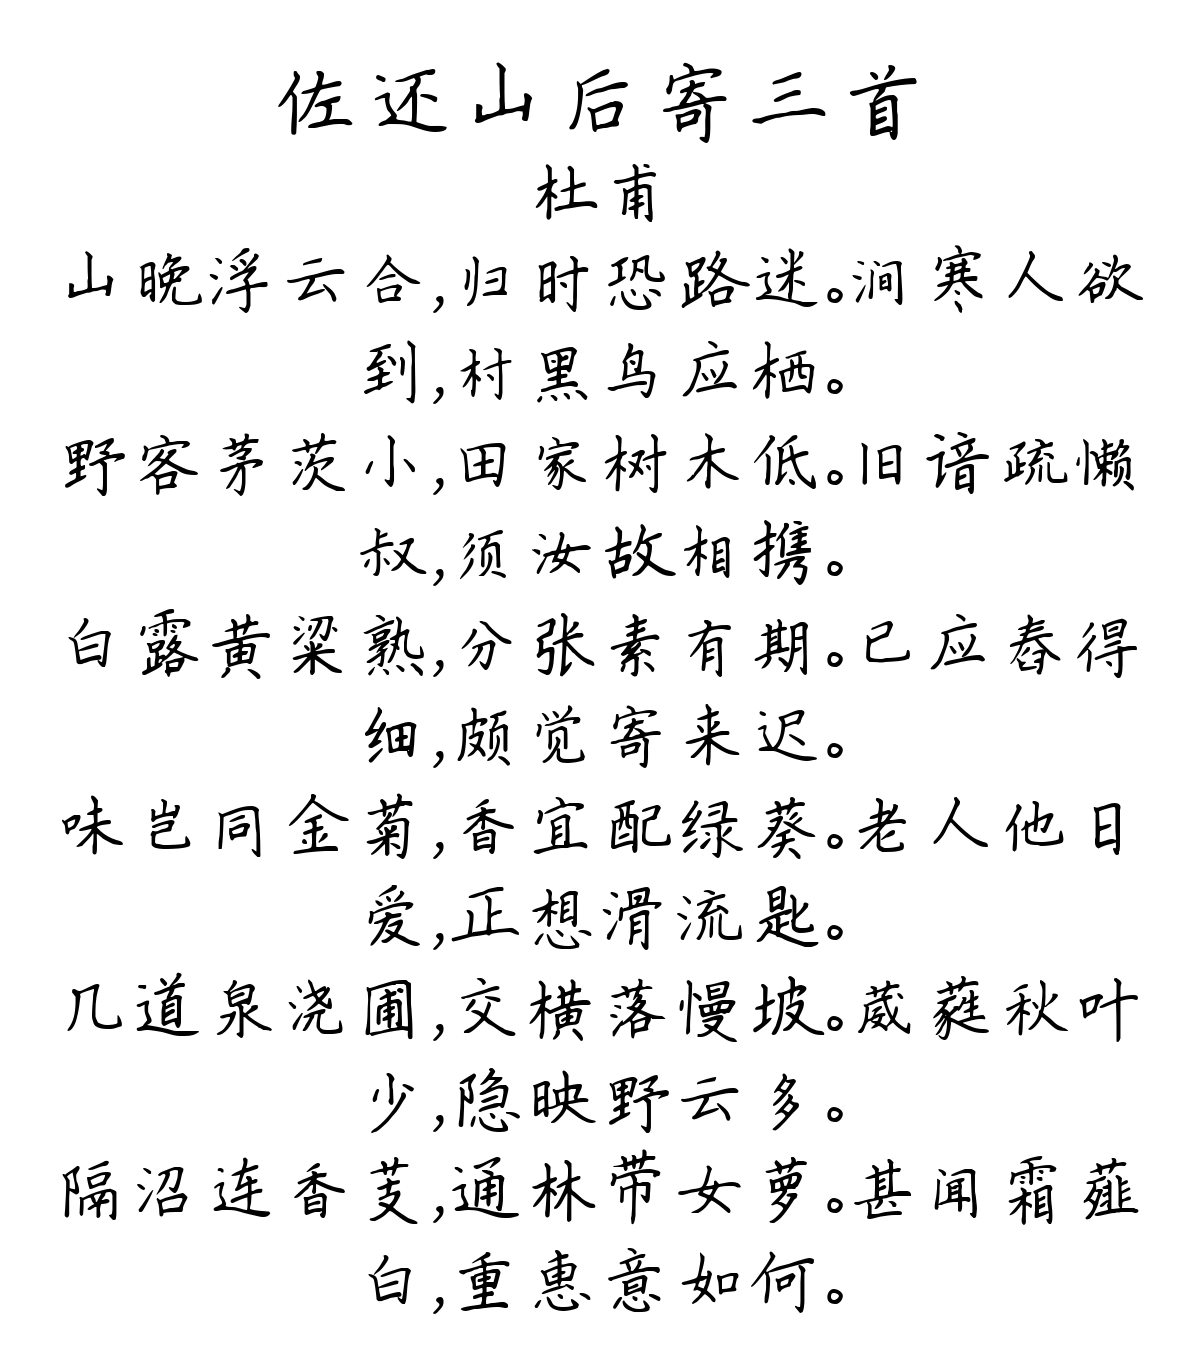 佐还山后寄三首
杜甫
山晚浮云合,归时恐路迷。涧寒人欲
到,村黑鸟应栖。
野客茅茨小,田家树木低。旧谙疏懒
叔,须汝故相携。
白露黄粱熟,分张素有期。已应舂得
细,颇觉寄来迟。
味岂同金菊,香宜配绿葵。老人他日
爱,正想滑流匙。
几道泉浇圃,交横落慢坡。葳蕤秋叶
少,隐映野云多。
隔沼连香芰,通林带女萝。甚闻霜薤
白,重惠意如何。